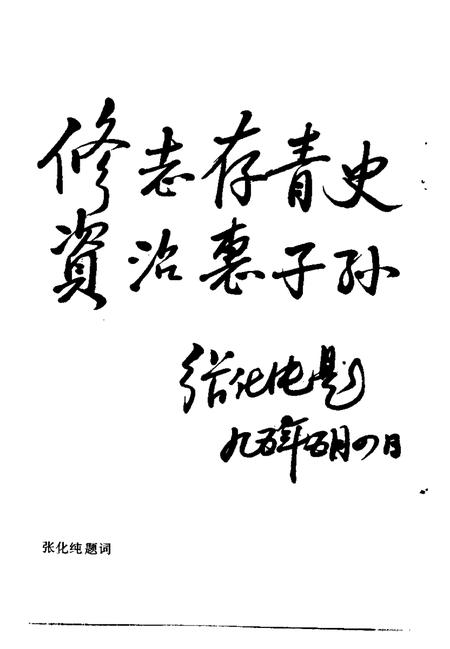 修志存青史
資治惠子孙
张化纯题
九五年五月四日
张化纯题词